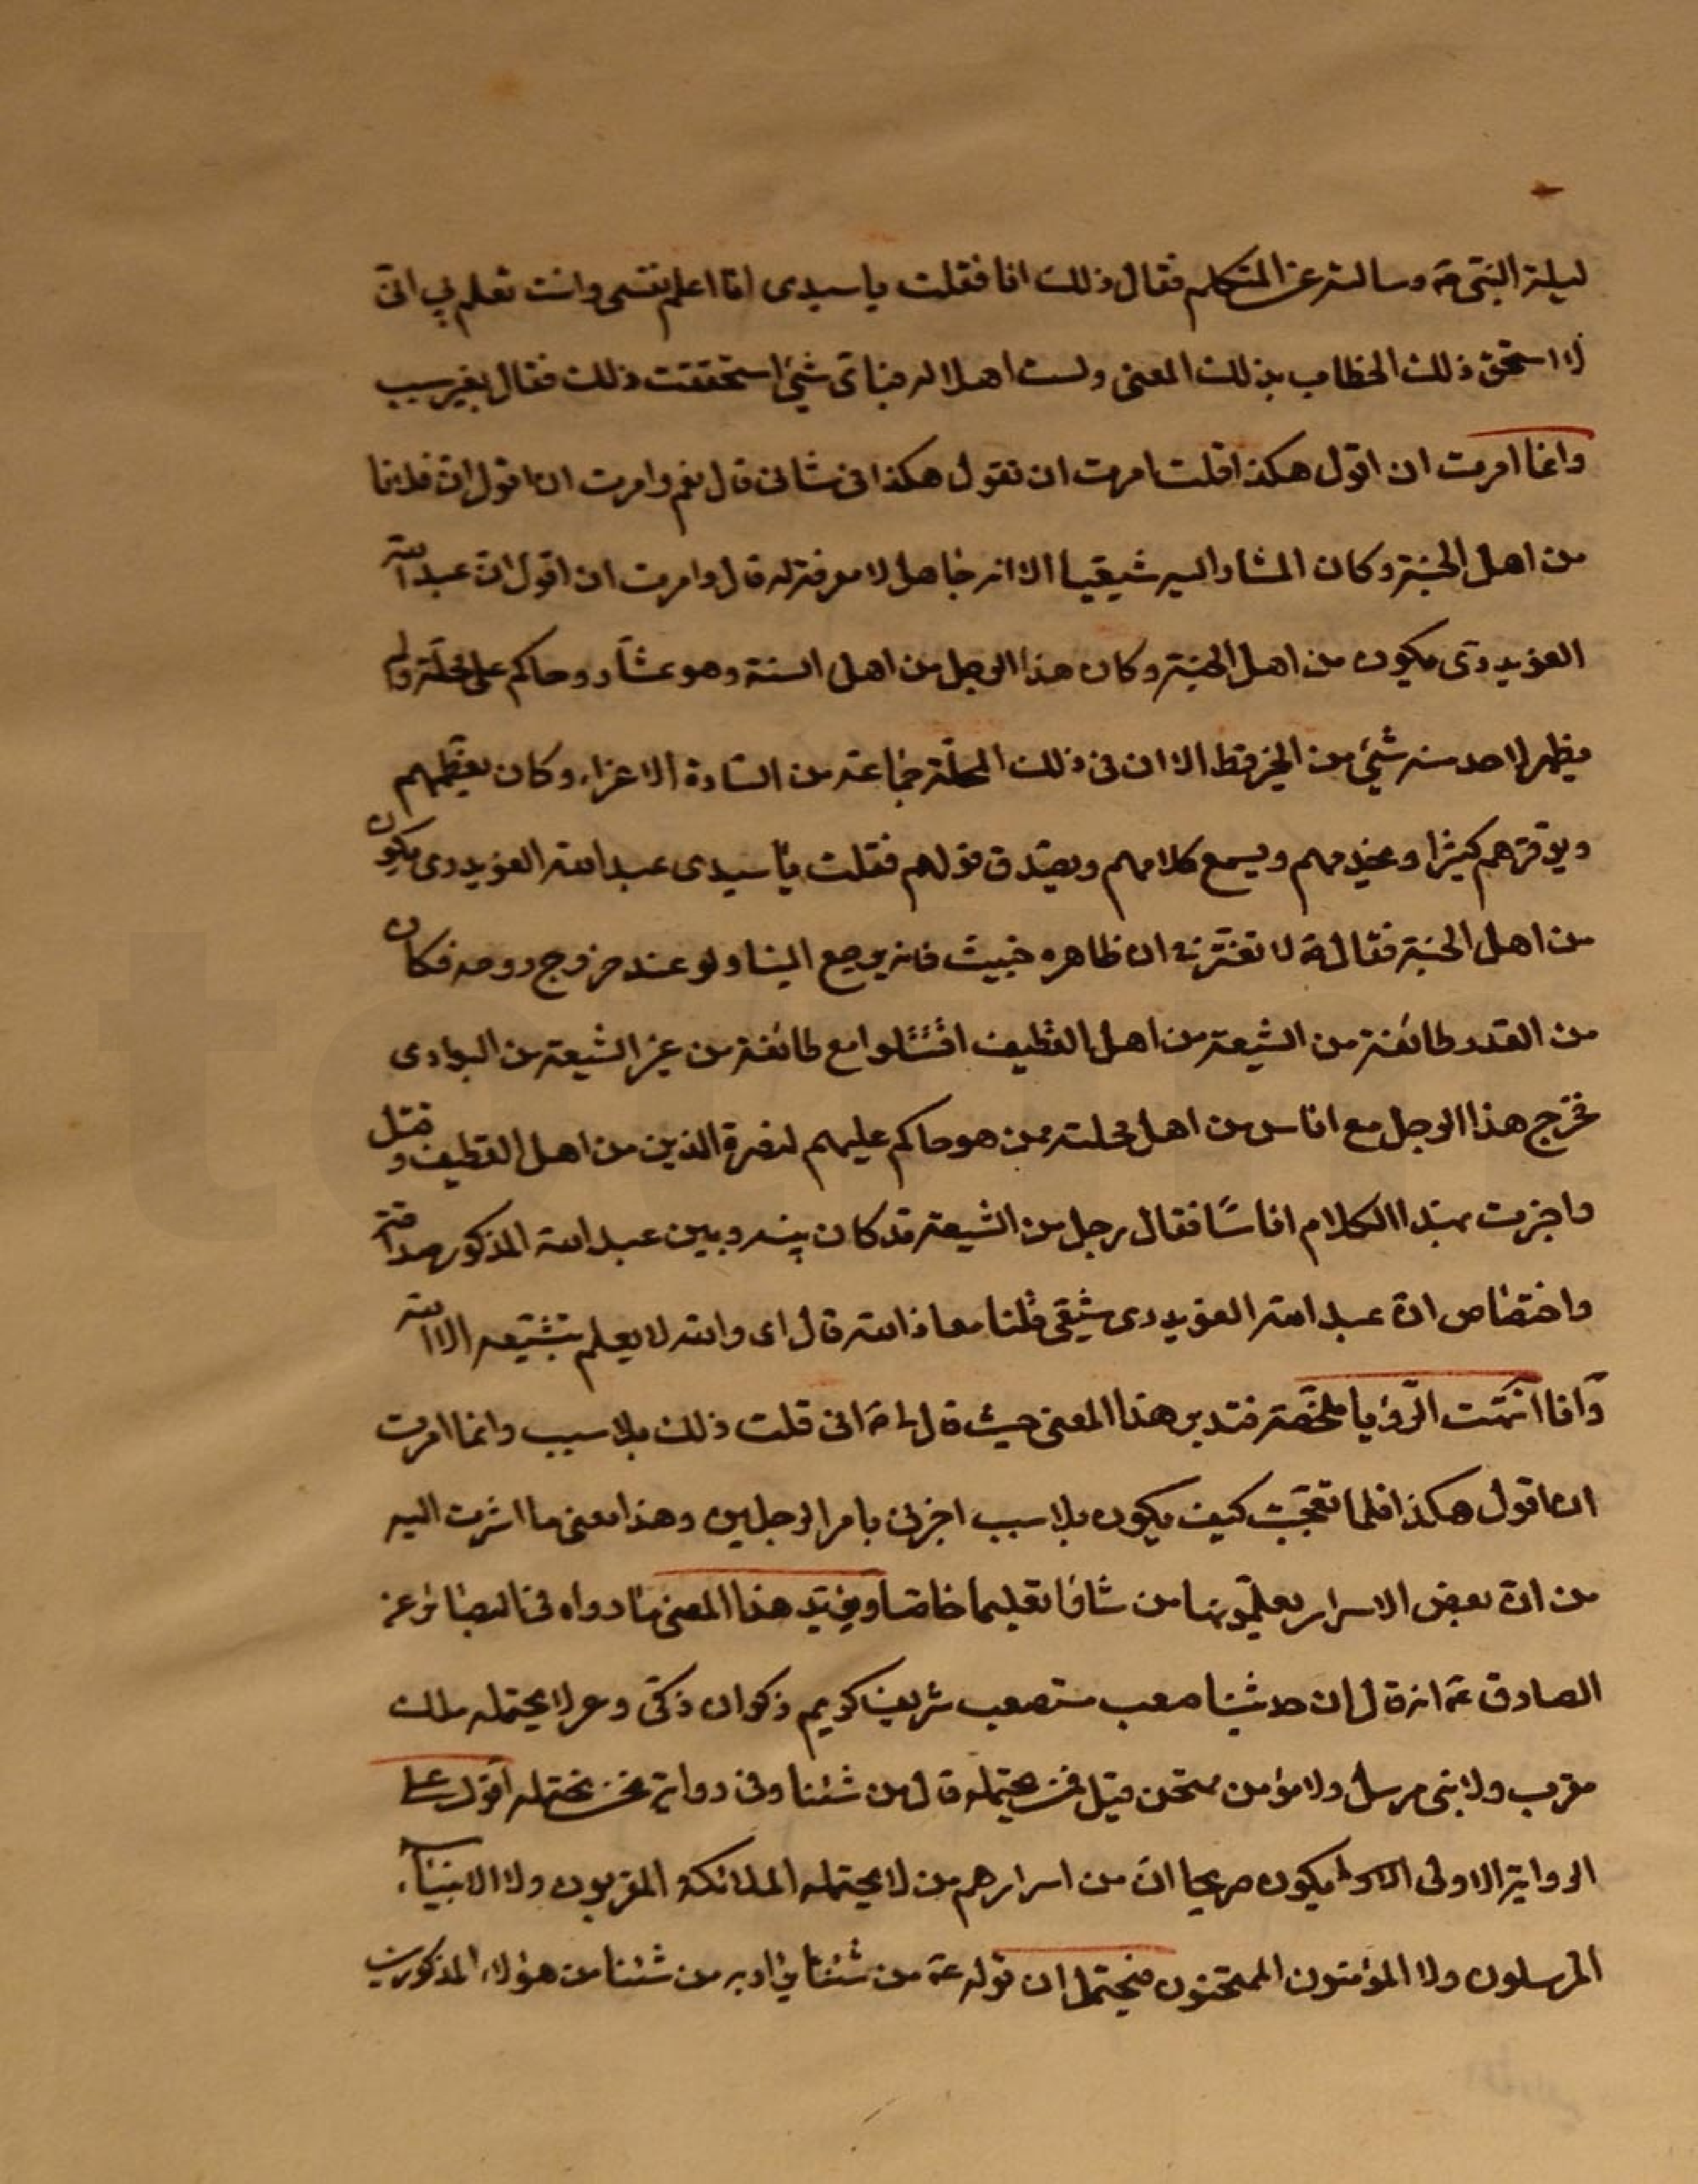 ليلة النبي ص وسالته عن المتكلم فقال ذلك انا فقلت يا سيدى انا اعلم نفسى وانت تعلم بي انى
لا استحق ذلك الخطاب بذلك المعنى ولست اهلا له فباى شئ استحققت ذلك فقال بغير سبب
وانما امرت ان اقول هكذا قلت امرت ان تقول هكذا فى شانى قال نعم وامرت ان اقول ان فلانا
من اهل الجنة وكان المشار اليه شيعيا الا انه جاهل لا معرفة له قال وامرت ان اقول ان عبد الله
الغويدرى يكون من اهل الجنة وكان هذا الرجل من اهل السنة وهو عشار وحاكم على محلة ولم
يظهر لاحد منه شئ من الخير قط الا ان فى ذلك المحلة جماعة من السادة الاعزاء وكان يعظمهم
ويوقرهم كثيرا ويخدمهم ويسمع كلامهم ويصدق قولهم فقلت يا سيدى عبد الله الغويدرى يكون
من اهل الجنة فقال ص لا تغتر به ان ظاهره خبيث فانه يرجع الينا ولو عند خروج روحه فكان
من القدر طائفة من الشيعة من اهل القطيف اقتتلوا مع طائفة من غير الشيعة من البوادى
فخرج هذا الرجل مع اناس من اهل محلته ممن هو حاكم عليهم لنصرة الذين من اهل القطيف وقتل
واخبرت بهذا الكلام اناسًا فقال رجل من الشيعة قد كان بينه وبين عبد الله المذكور صداقة
واختصاص ان عبد الله الغويدرى شيعى قلنا معاذ الله قال اى والله لا يعلم بتشيعه الا الله
وانا اتممت الرؤيا ملخصة فتدبر هذا المعنى حيث قال لى ص انى قلت ذلك بلا سبب وانما امرت
ان اقول هكذا فلما تعجبت كيف يكون بلا سبب اخبرنى بامر الرجلين وهذا معنى ما اشرت اليه
من ان بعض الاسرار يعلمونها من شاؤا تعليما خاصا ويؤيد هذا المعنى ما رواه فى البصائر عن
الصادق ع انه قال ان حديثنا صعب مستصعب شريف كريم ذكوان ذكى وعر لا يحتمله ملك
مقرب ولا نبى مرسل ولا مؤمن ممتحن قيل فمن يحتمله قال من شئنا وفى رواية نحن نحتمله اقول على
الرواية الاولى يكون صريحا ان من اسرارهم من لا يحتمله الملائكة المقربون ولا الانبياء
المرسلون ولا المؤمنون الممتحنون فيحتمل ان قوله ع من شئنا يراد به من شئنا من هؤلاء المذكورين